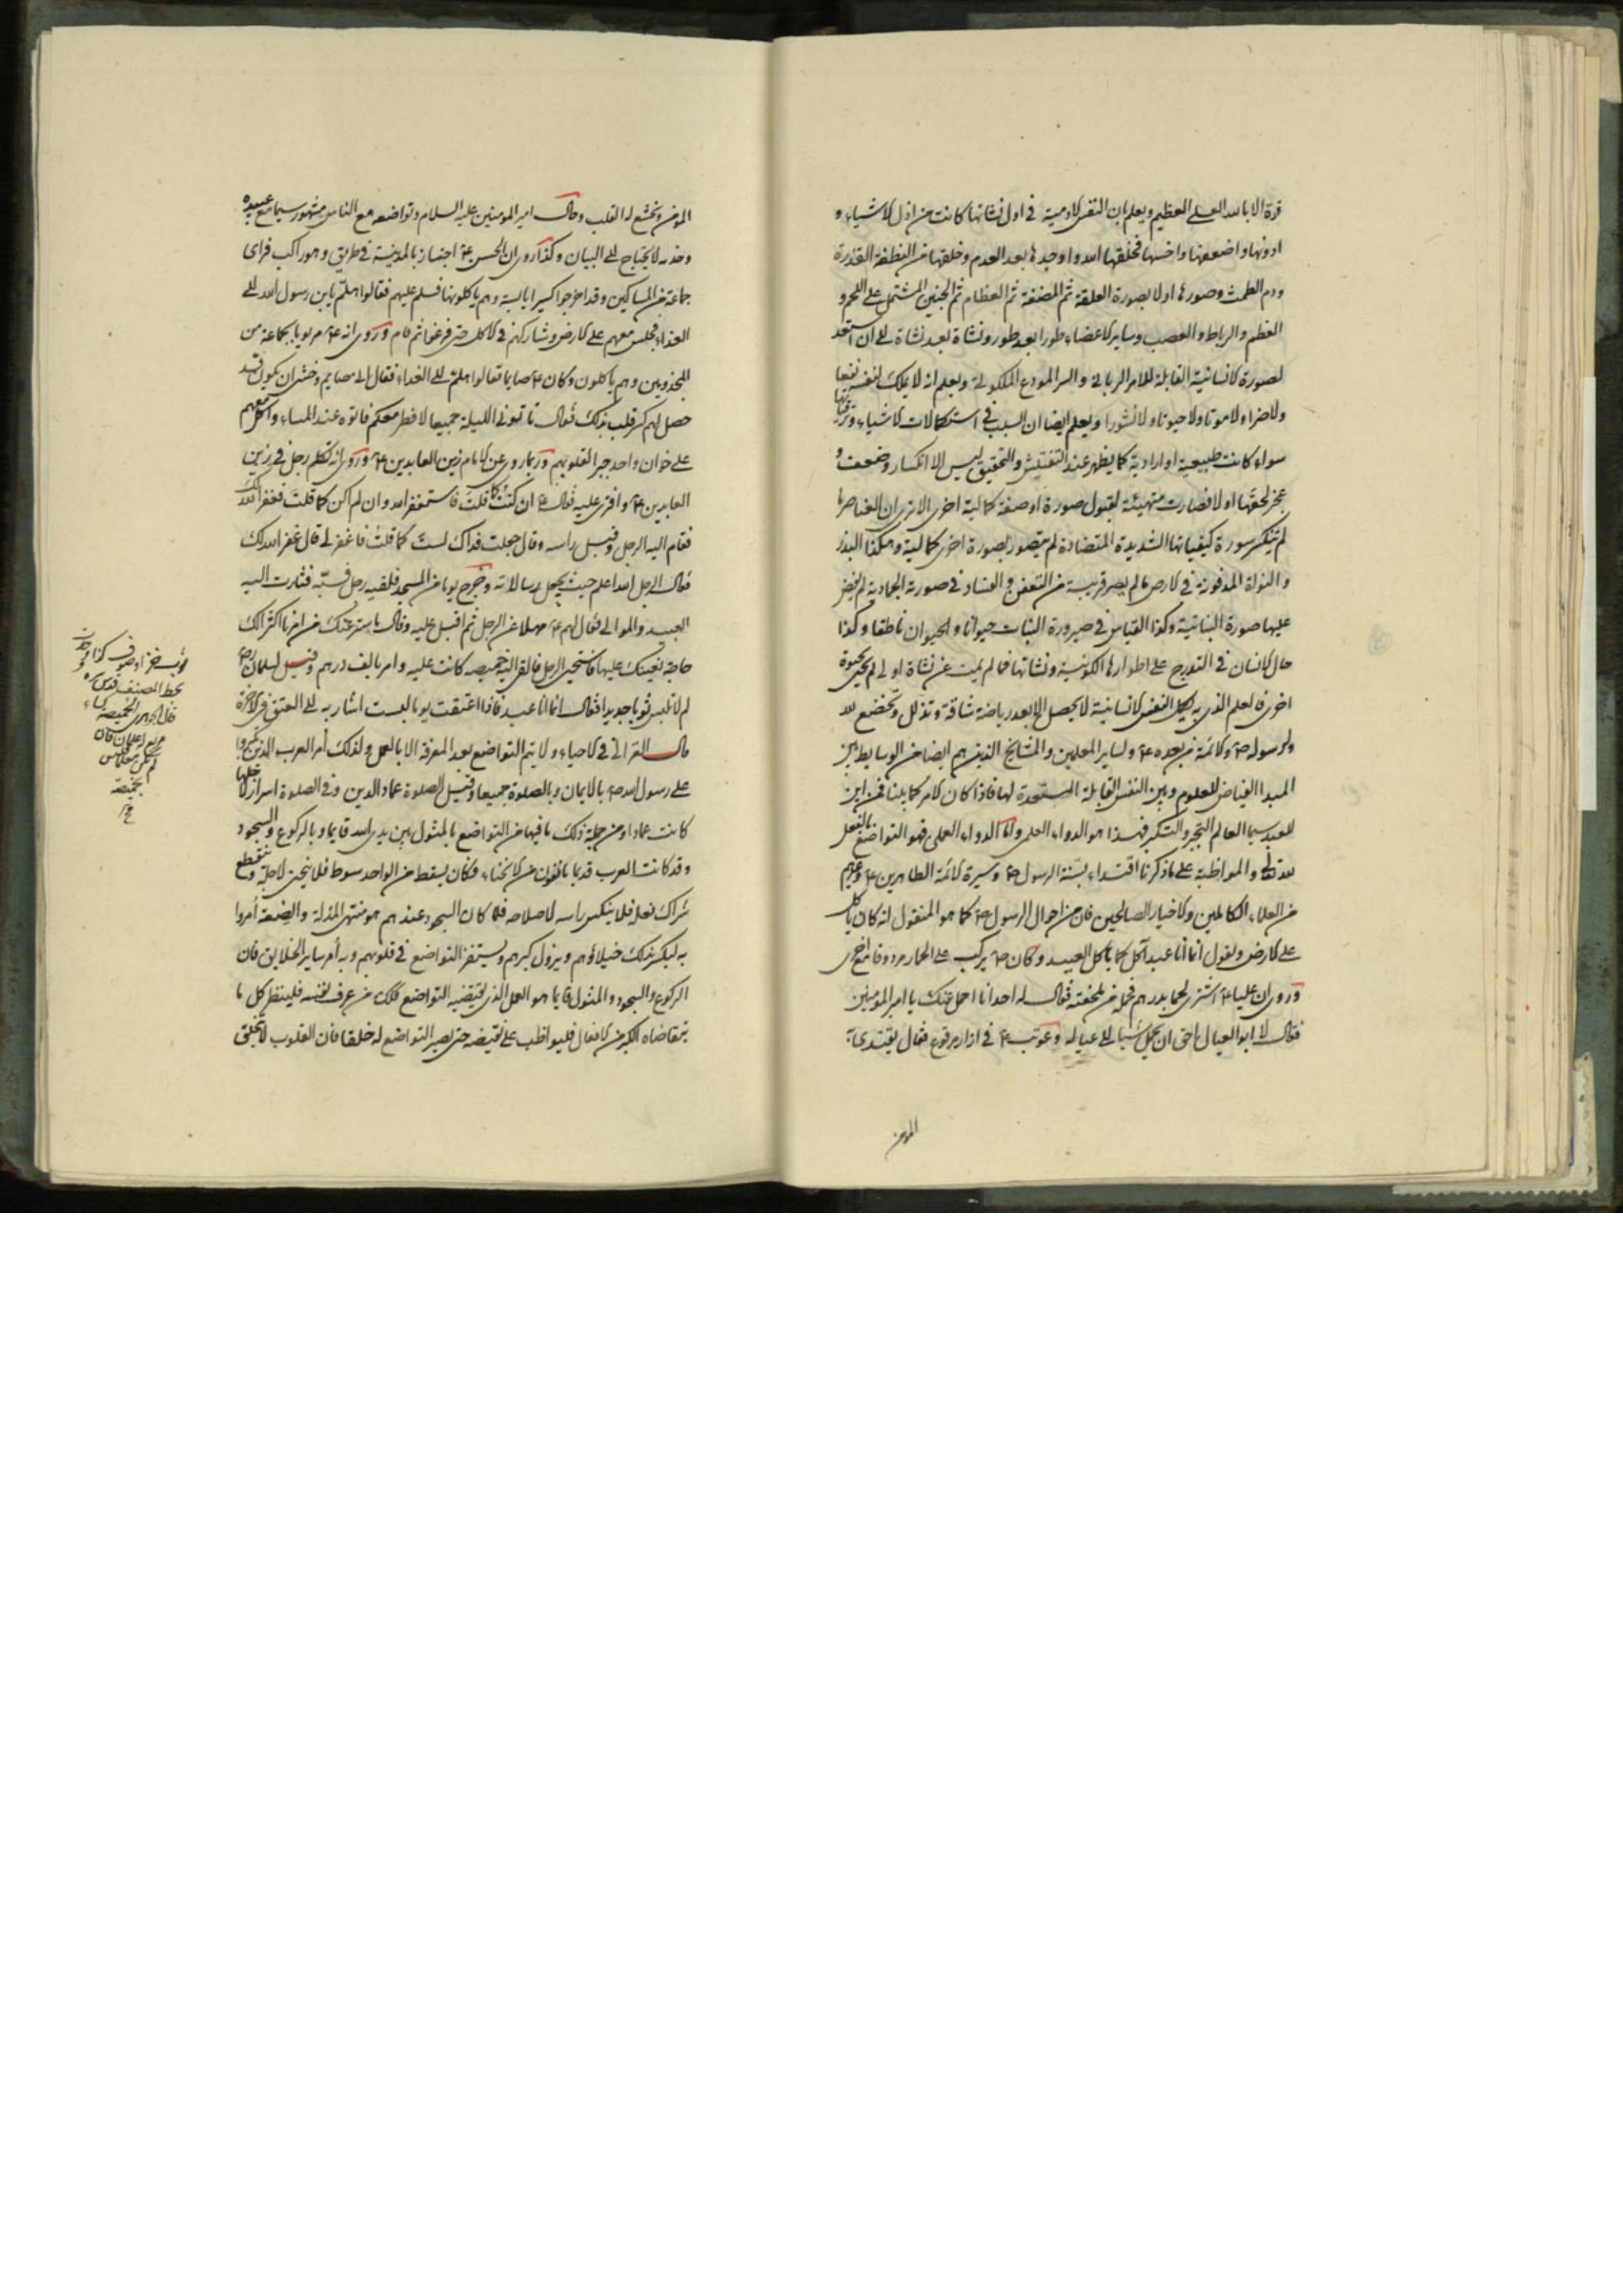 قوة الا بالله العلي العظيم ويعلم بان النفس الادمية في اول نشاتها كانت من ارذل الاشياء و
ادونها واضعفها واخسها فخلقها الله واوجدها بعد العدم وخلقها من النطفة القذرة
ودم الطمث وصورها اولا بصورة العلقة ثم المضغة ثم العظام ثم الجنين المشتمل على اللحم و
العظم والرباط والعصب وساير الاعضاء طورا بعد طور ونشاة بعد نشاة الى ان استعد
لصورة الانسانية القابلة للامر الرباني والسر المودع الملكوتي ويعلم انه لا يملك لنفسه نفعا
ولا ضرا ولا موتا ولا حيوتا ولا نشورا ويعلم ايضا ان السبب في استكمالات الاشياء وترقياتها
سواء كانت طبيعية او ارادية كما يظهر عند التفتيش والتحقيق ليس الا انكسار وضعف و
عجز لحقها اولا فصارت متهيئة لقبول صورة او صفة كمالية اخرى الا ترى ان العناصر ما
لم تنكسر سورة كيفياتها الشديدة المتضادة لم يتصور بصورة اخرى كمالية وهكذا البذر
والنواة المدفونة في الارض ما لم يصر قريبة من التعفن والفساد في صورته الجمادية لم يفض
عليها صورة النباتية وكذا القياس في صيرورة النبات حيوانا والحيوان ناطقا وكذا
حال الانسان في التدرج على اطوارها الكونية ونشاتها فما لم يمت عن نشاة اولى لم يحيى بحيوة
اخرى فالعلم الذي به يكمل النفس الانسانية لا يحصل الا بعد رياضة شاقة وتذلل وتخضع لله
ولرسوله ص والائمة من بعده ع ولساير المعلمين والمشايخ الذين هم ايضا من الوسايط بين
المبدا الفياض للعلوم وبين النفس القابلة المستعدة لها فاذا كان الامر كما بينا فمن اين
للعبد سيما العالم التجبر والتكبر فهذا هو الدواء العلمي واما الدواء العملي فهو التواضع بالفعل
لله تعالى والمواظبة على ما ذكرنا اقتداء بسنة الرسول ص وسيرة الائمة الطاهرين ع وغيرهم
من العلماء الكاملين والاخيار الصالحين فان من احوال الرسول ص كما هو المنقول انه كان ياكل
على الارض ويقول انما انا عبد آكل كما ياكل العبيد وكان ص يركب على الحمار مردوفا مع اخرى
وروي ان عليا ع اشترى لحما بدرهم فحمله في ملحفته فقال له احد انا احمل عنك يا امير المؤمنين
فقال لا ابو العيال احق ان يحمل شيئا الى عياله وعوتب ع في ازار مرقوع فقال يقتدى به
المؤمن
المؤمن ويخشع له القلب وحال امير المؤمنين عليه السلام وتواضعه مع الناس مشهور سيما مع عبيده
وخدمه لا يحتاج الى البيان وكذا روي ان الحسن ع اجتاز بالمدينة في طريق وهو راكب فراى
جماعة من المساكين وقد اخرجوا كسيرا يابسة وهم ياكلونها فسلم عليهم فقالوا هلم يابن رسول الله الى
الغداء فجلس معهم على الارض وشاركهم في الاكل حتى فرغوا ثم قام وروي انه ع مر يوما بجماعة من
المجذومين وهم ياكلون وكان ع صايما فقالوا هلم الى الغداء فقال اني صايم وخشي ان يكون قد
حصل لهم كسر قلب بذلك فقال تاتوني الليلة جميعا لافطر معكم فاتوه عند المساء واكل معهم
على خوان واحد جبرا لقلوبهم وربما روي عن الامام زين العابدين ع وروي انه تكلم رجل في زين
العابدين ع وافترى عليه فقال ع ان كنت كما قلت فاستغفر الله وان لم اكن كما قلت فغفر الله لك
فقام اليه الرجل وقبل راسه وقال جعلت فداك لست كما قلت فاغفر لي قال غفر الله لك
فقال الرجل الله اعلم حيث يجعل رسالاته وخرج يوما من المسجد فلقيه رجل فسبه فثارت اليه
العبيد والموالي فقال لهم ع مهلا عن الرجل ثم اقبل عليه وقال ما ستر عنك من امرنا اكثر الك
حاجة نعينك عليها فاستحيى الرجل فالقى اليه خميصة كانت عليه وامر بالف درهم وقيل لسلمان رض
لم لا تلبس ثوبا جديدا فقال انما انا عبد فاذا اعتقت يوما لبست اشار به الى العتق في الاخرة
قال الغزالي في الاحياء ولا يتم التواضع بعد المعرفة الا بالعمل ولذلك امر العرب الذين تكبروا
على رسول الله ص بالايمان وبالصلوة جميعا وقيل الصلوة عماد الدين وفي الصلوة اسرار لاجلها
كانت عمادا ومن جملة ذلك ما فيها من التواضع بالمثول بين يدي الله قايما وبالركوع والسجود
وقد كانت العرب قديما يانفون من الانحناء فكان يسقط من الواحد سوط فلا ينحني لاخذه وينقطع
شراك نعله فلا ينكس راسه لاصلاحه فلما كان السجود عندهم هو منتهى المذلة والضعة امروا
به ليكسر بذلك خيلاؤهم ويزول كبرهم ويستقر التواضع في قلوبهم وبه امر ساير الخلايق فان
الركوع والسجود والمثول قايما هو العمل الذي يقتضيه التواضع فكذلك من عرف نفسه فلينظر كل ما
يتقاضاه الكبر من الافعال فليواظب على نقيضه حتى يصير التواضع له خلقا فان القلوب لا تتخلق
ثوب خز او صوف كذا وجدت
بخط المصنف قدس سره
قال الجوهري الخميصة كساء
مربع له علمان فان
لم يكن معلما فليس
بخميصة